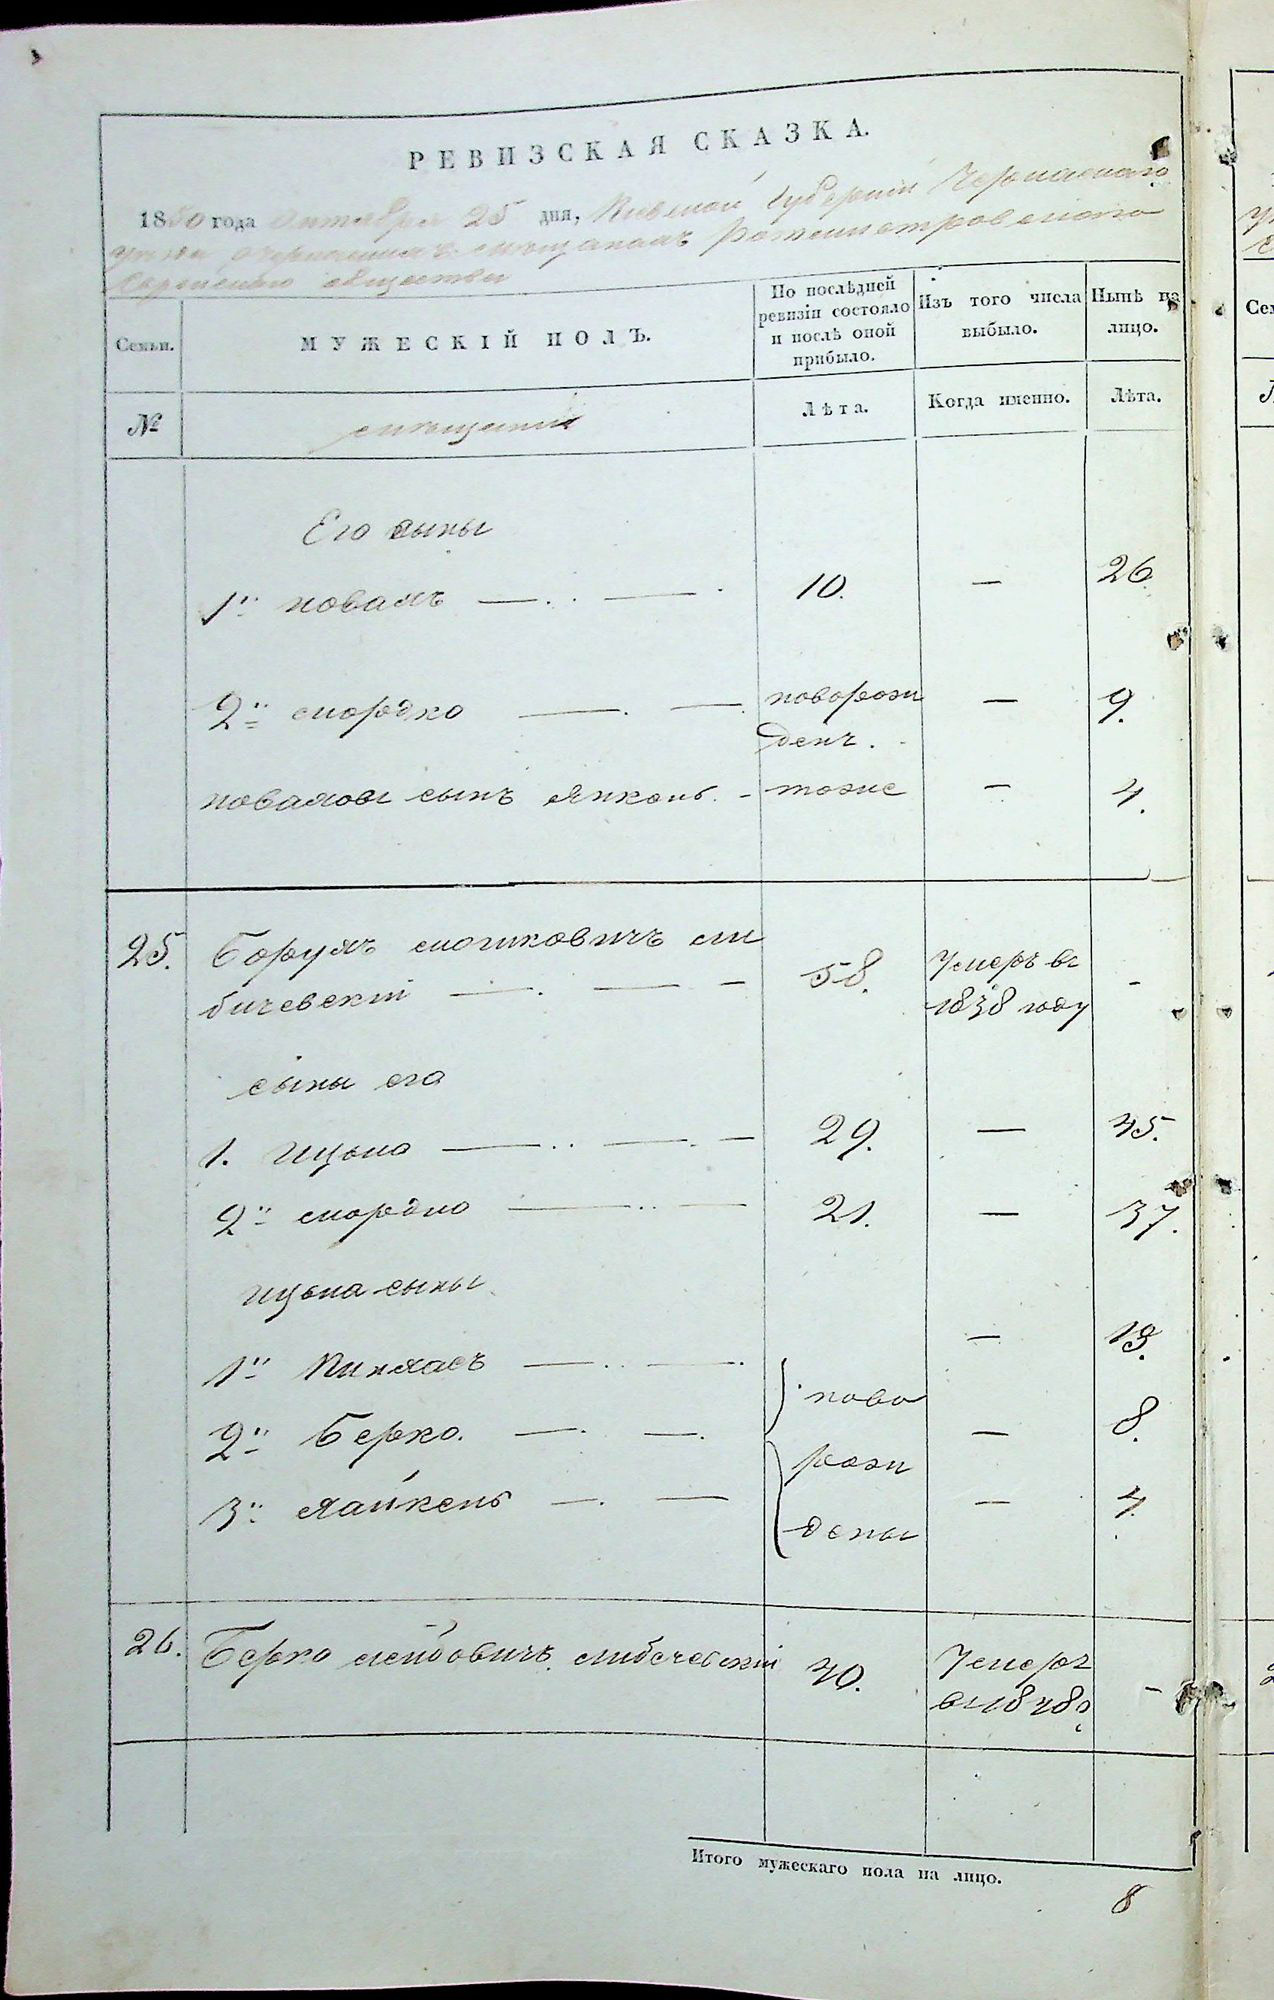 РЕВИЗСКАЯ СКАЗКА.
1850 года октября 25 дня, Киевской Губернии Черкаскаго
уезда о мещанахъ Ротмистровского
Еврейского общества
Семьи.
МУЖЕСКІЙ ПОЛЪ.
По послѣдней ревизіи состояло и послѣ оной прибыло.
Изъ того числа выбыло.
Нынѣ на лицо.
№
мещани
Лѣта.
Когда именно.
Лѣта.
Его сыны
1й новахъ — 10. — 26.
2й мордко — новорож — 9.
денъ.
новахов сынъ янкель. - тоже — 4.
25. Борухъ мошковичъ ли 58. Умеръ въ -
бичевскій — 1838 году
сыны его
1. ицько — 29. — 45.
2й мордко — 21. — 37.
ицька сыны
1й Пинхасъ — — 13.
2й Берко. — ново — 8.
3й — рож — 4.
дены
26. Берко лейбовичъ либечевскій 40. Умеръ -
в 1848 г.
Итого мужескаго пола на лицо.
8